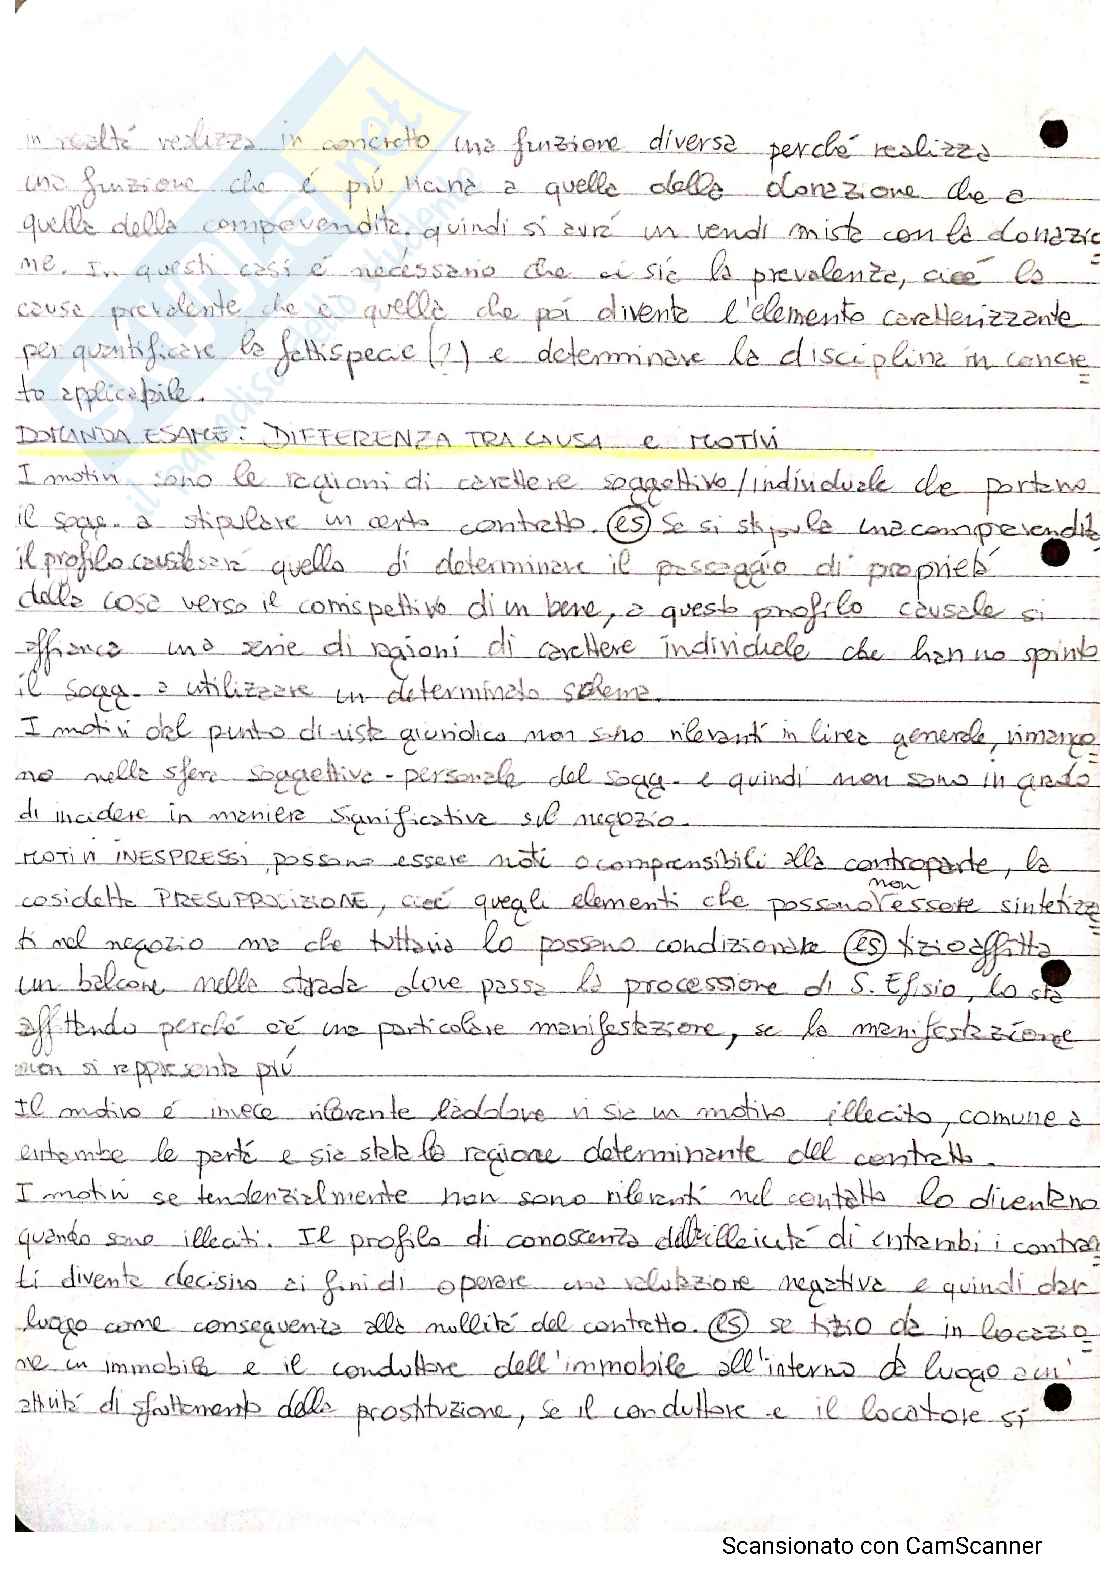 in realtá realizza in concreto una funzione diversa perché realizza
una funzione che é piú vicina a quella della donazione che a
quella della compravendita. quindi si avrá un vendi mista con la donazio
ne. In questi casi é necessario che ci sia la prevalenza, cioé la
causa prevalente che é quella che poi diventa l'elemento caratterizzante
per quantificare la fattispecie (?) e determinare la disciplina in concre
to applicabile.
DOMANDA ESAME: DIFFERENZA TRA CAUSA e MOTIVI
I motivi sono le ragioni di carattere soggettivo/individuale che portano
il sogg. a stipulare un certo contratto. es Se si stipula una compravendita
il profilo causale sará quello di determinare il passaggio di proprietá
della cosa verso il corrispettivo di un bene, a questo profilo causale si
affianca una serie di ragioni di carattere individuale che hanno spinto
il sogg. a utilizzare un determinato schema.
I motivi dal punto di vista giuridico non sono rilevanti in linea generale, rimango
no nella sfera soggettiva-personale del sogg. e quindi non sono in grado
di incidere in maniera significativa sul negozio.
MOTIVI INESPRESSI, possono essere noti o comprensibili alla controparte, la
cosidetta PRESUPPOSIZIONE, cioé quegli elementi che possono non essere sintetizza
ti nel negozio ma che tuttavia lo possono condizionare es tizio affitta
un balcone nella strada dove passa la processione di S. Efisio, lo sta
affittando perché c'é una particolare manifestazione, se la manifestazione
non si rappresenta piú
Il motivo é invece rilevante laddove vi sia un motivo illecito, comune a
entrambe le parti e sia stata la ragione determinante del contratto.
I motivi se tendenzialmente non sono rilevanti nel contatto lo diventano
quando sono illeciti. Il profilo di conoscenza dell'illeicitá di entrambi i contraen
ti diventa decisivo ai fini di operare una valutazione negativa e quindi dar
luogo come conseguenza alla nullitá del contratto. es se tizio dá in locazio
ne un immobile e il conduttore dell'immobile all'interno dá luogo a un'
attivitá di sfruttamento della prostituzione, se il conduttore e il locatore si
Scansionato con CamScanner